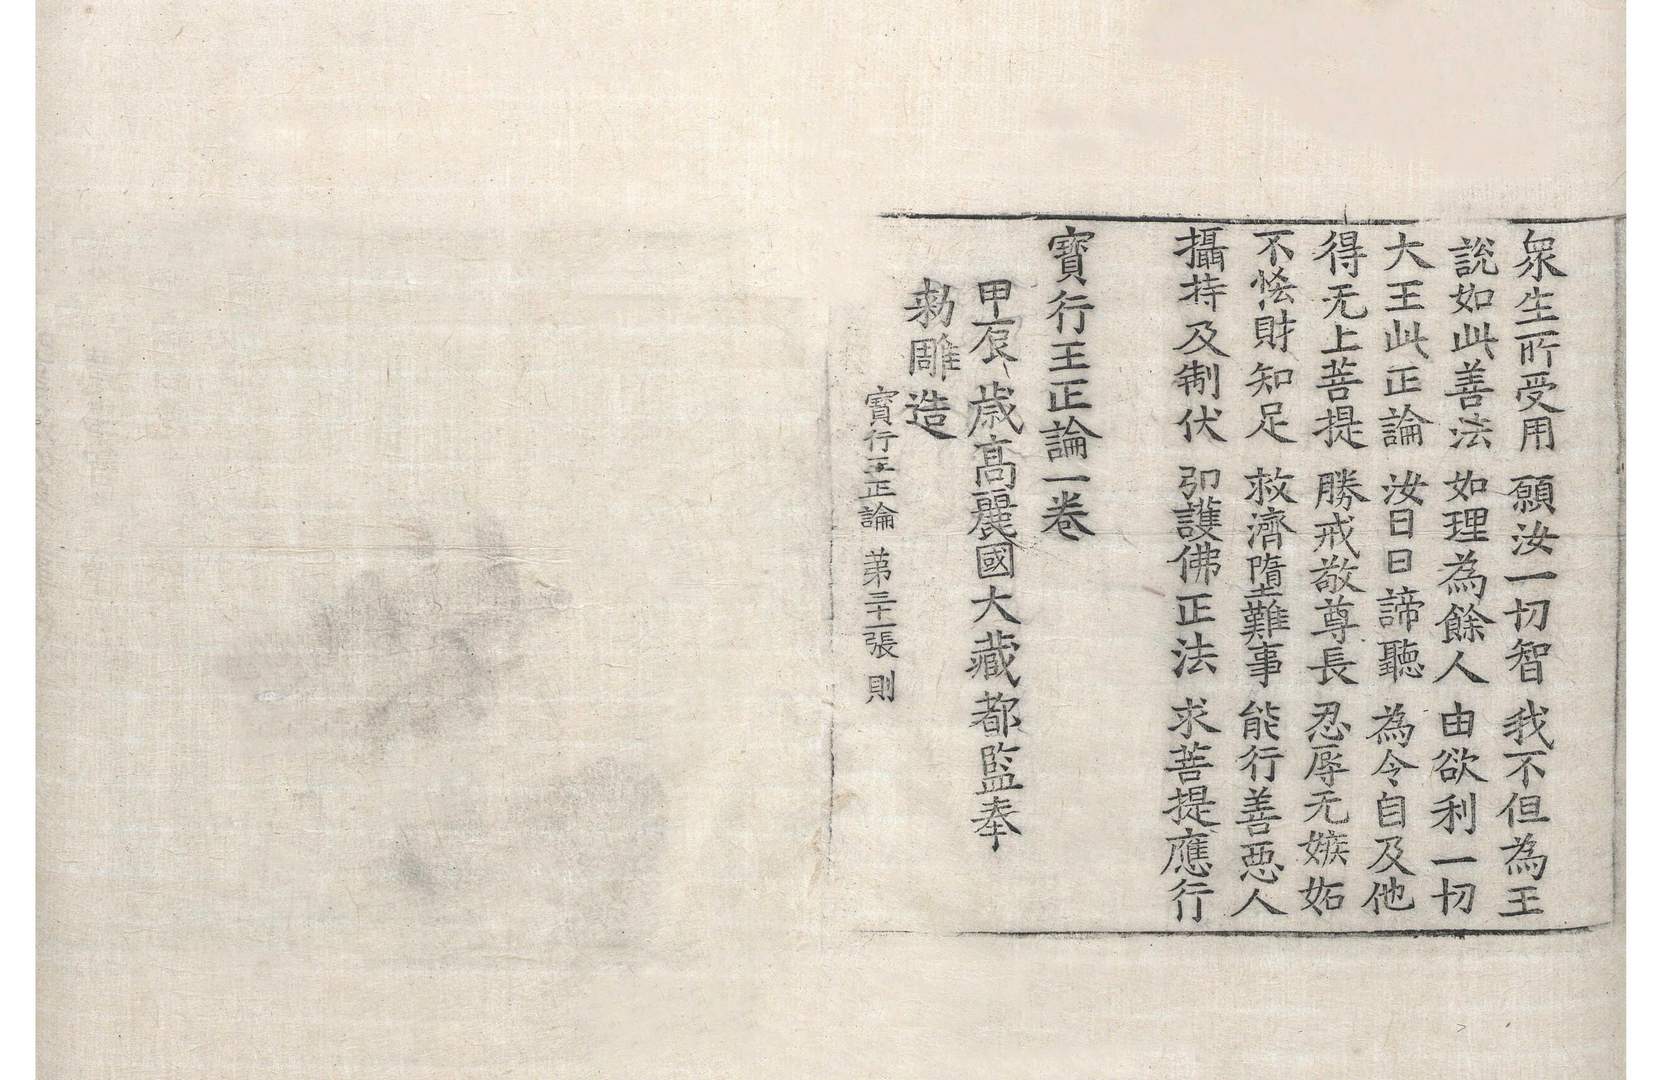 衆生所受用 願汝一切智 我不但為王
說如此善法 如理為餘人 由欲利一切
大王此正論 汝日日諦聽 為令自及他
得无上菩提 勝戒敬尊長 忍辱无嫉妬
不恡財知足 救濟墮難事 能行善惡人
攝持及制伏 弘護佛正法 求菩提應行
寶行王正論一卷
甲辰歲高麗國大藏都監奉
勑雕造
寶行王正論 苐三十一張 則